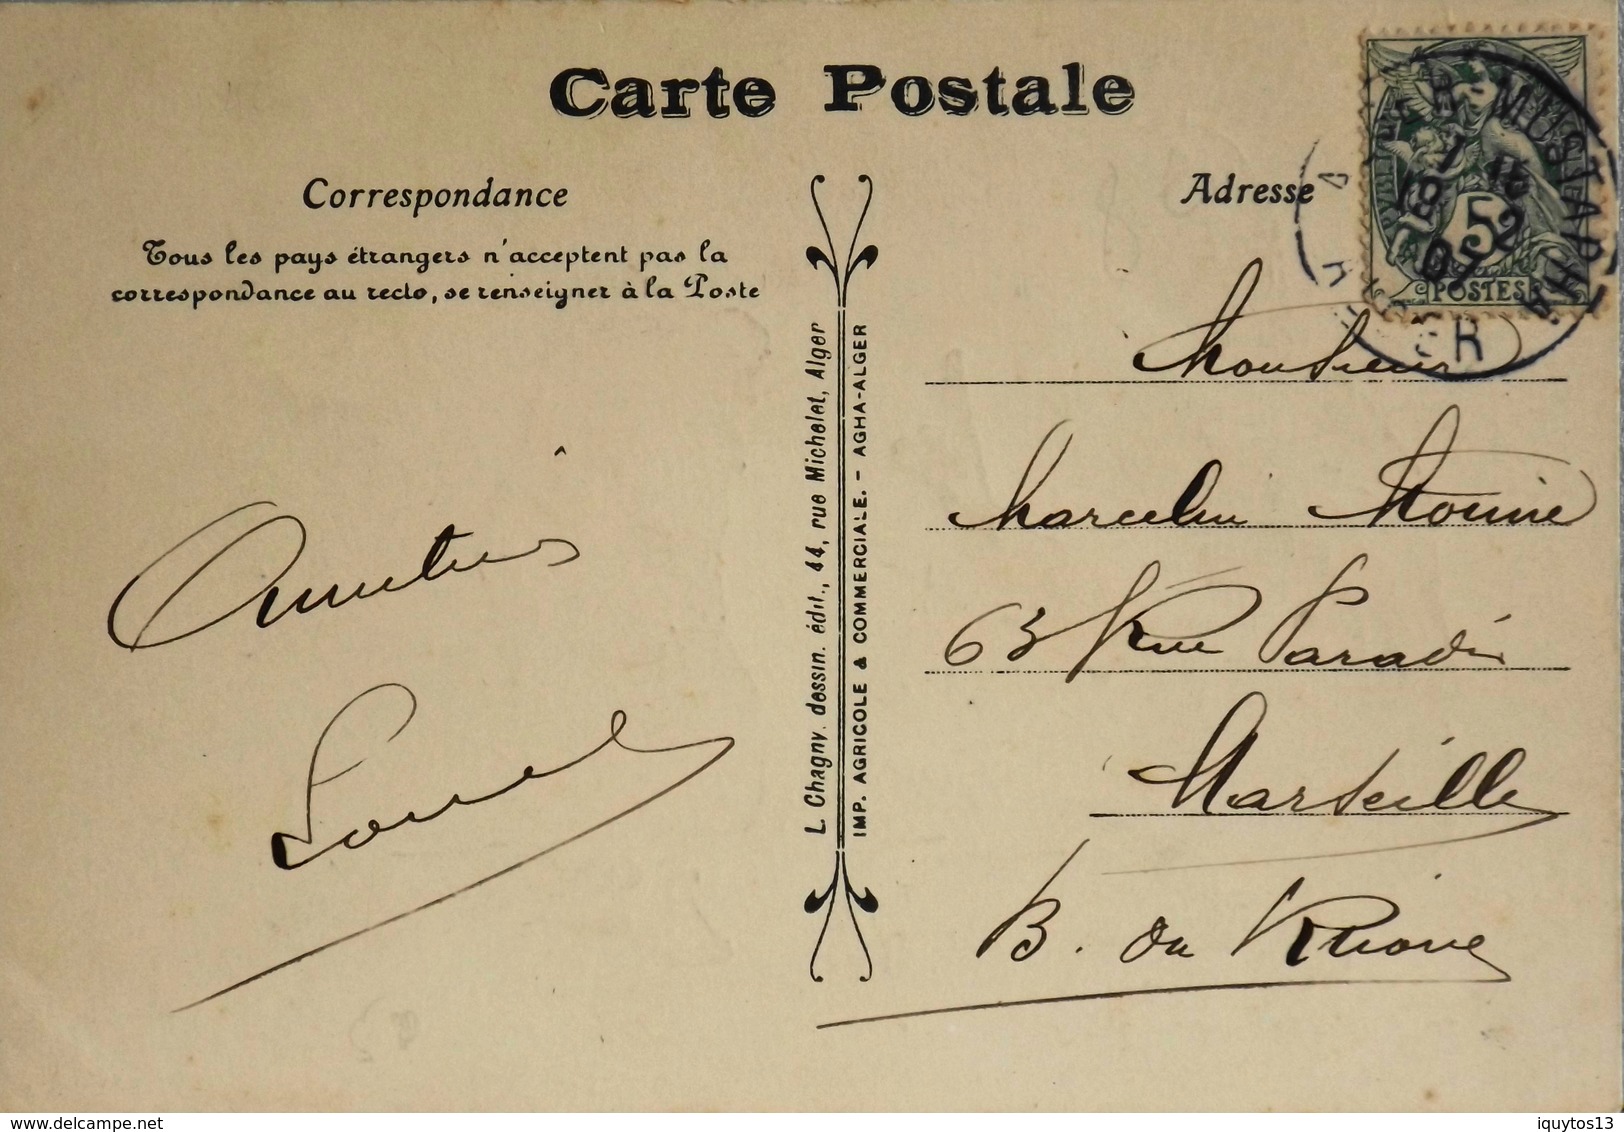 Carte Postale
Correspondance
Tous les pays étrangers n'acceptent pas la
correspondance au recto, se renseigner à la Poste
Amitiés
L. Chagny. dessin. édit., 44, rue Michelet, Alger
IMP. AGRICOLE & COMMERCIALE. - AGHA-ALGER
Adresse
ALGER-MUSTAPHA
ALGER
5
POSTES
Monsieur
Marcelin
63 Rue Paradis
Marseille
B. du Rhone
delcampe.net
iquytos13